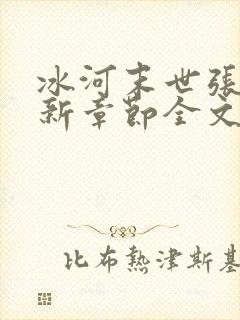 冰河末世張
新章節全文
比布熱津斯基